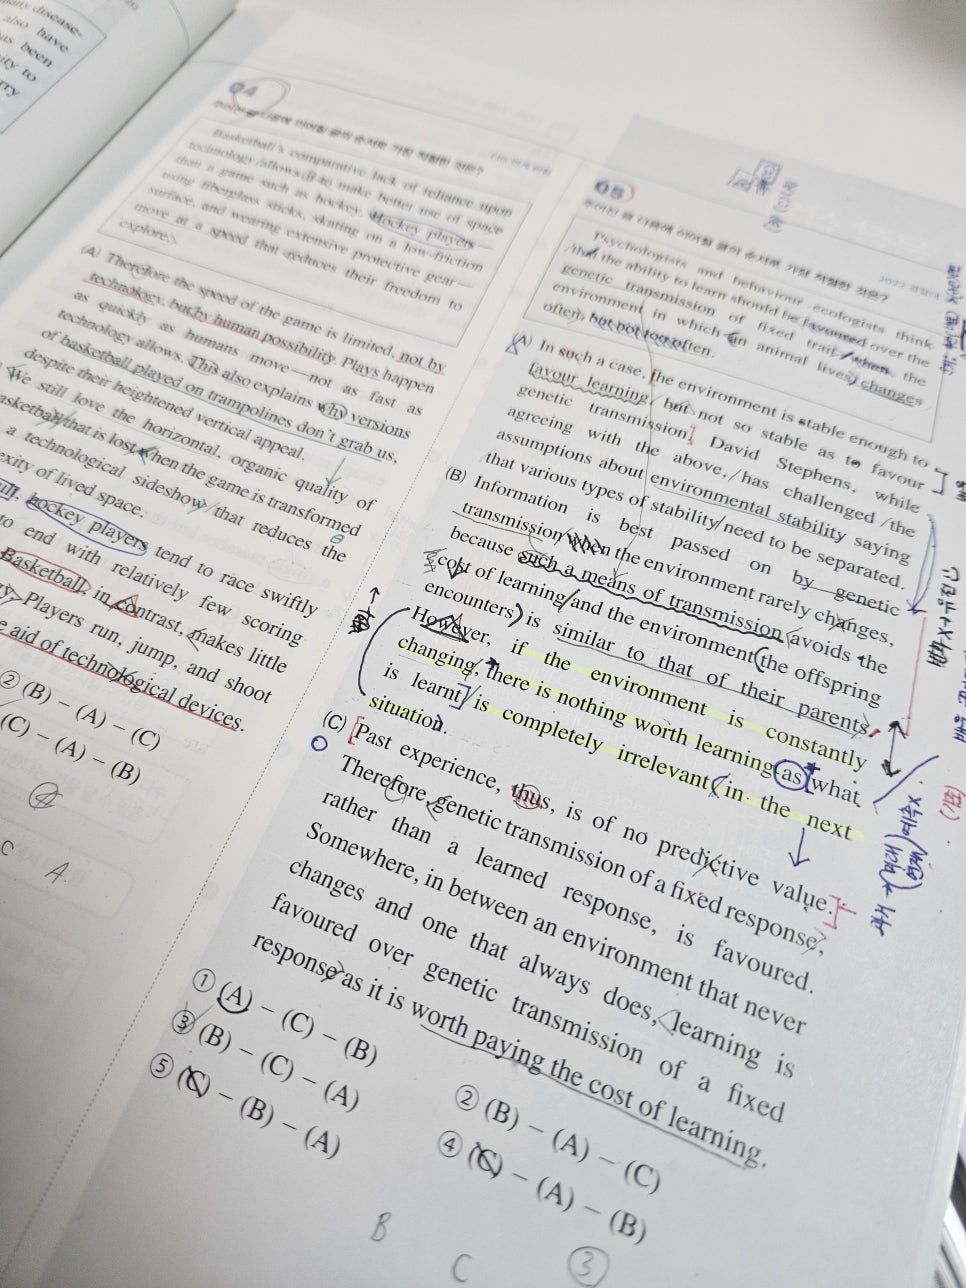 also have
as been
ity to
rry
04
Basketball's comparative lack of reliance upon
technology allows it to make better use of space
than a game such as hockey. Hockey players—
using fiberglass sticks, skating on a low-friction
surface, and wearing extensive protective gear—
move at a speed that reduces their freedom to
explore.
(A) Therefore the speed of the game is limited, not by
technology, but by human possibility. Plays happen
as quickly as humans move—not as fast as
technology allows. This also explains why versions
of basketball played on trampolines don't grab us,
despite their heightened vertical appeal.
We still love the horizontal, organic quality of
basketball that is lost when the game is transformed
a technological sideshow that reduces the
exity of lived space.
hockey players tend to race swiftly
to end with relatively few scoring
Basketball, in contrast, makes little
Players run, jump, and shoot
e aid of technological devices.
② (B) – (A) – (C)
(C) – (A) – (B)
④
C A
05
주어진 글 다음에 이어질 글의 순서로 가장 적절한 것은?
Psychologists and behaviour ecologists think
that the ability to learn should be favoured over the
genetic transmission of fixed trait when the
environment in which an animal lives changes
often, but not too often.
(A) In such a case, the environment is stable enough to
favour learning, but not so stable as to favour
genetic transmission. David Stephens, while
agreeing with the above, has challenged the
assumptions about environmental stability saying
that various types of stability need to be separated.
(B) Information is best passed on by genetic
transmission when the environment rarely changes,
because such a means of transmission avoids the
cost of learning and the environment the offspring
encounters is similar to that of their parents.
However, if the environment is constantly
changing, there is nothing worth learning as what
is learnt is completely irrelevant in the next
situation.
(C) Past experience, thus, is of no predictive value.
Therefore, genetic transmission of a fixed response,
rather than a learned response, is favoured.
Somewhere, in between an environment that never
changes and one that always does, learning is
favoured over genetic transmission of a fixed
response as it is worth paying the cost of learning.
① (A) – (C) – (B)
② (B) – (A) – (C)
③ (B) – (C) – (A)
④ (C) – (A) – (B)
⑤ (C) – (B) – (A)
B C ③